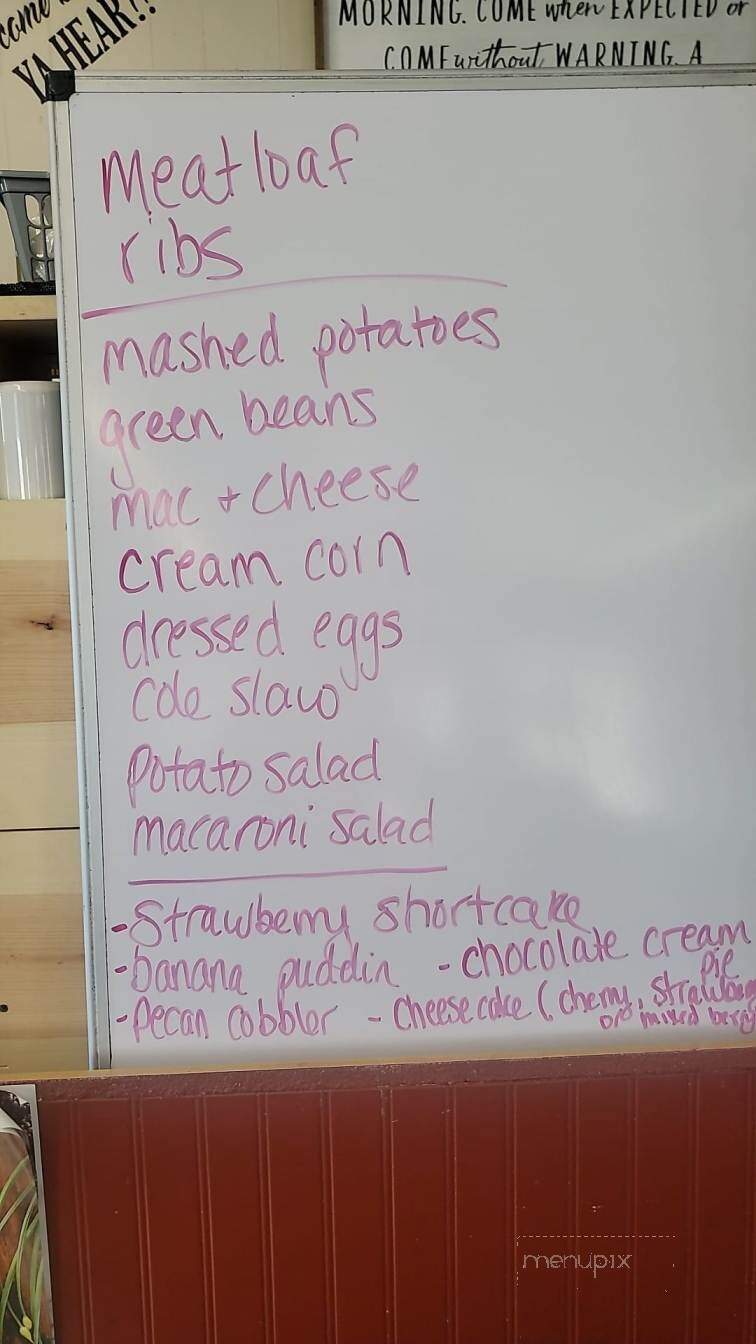 come
YA HEAR!!
MORNING. COME when EXPECTED or
COME without WARNING. A
Meatloaf
ribs
mashed potatoes
green beans
mac + cheese
cream corn
dressed eggs
Cole slaw
Potato salad
macaroni salad
- Strawberry shortcake
- banana puddin - chocolate cream
pie
- Pecan cobbler - Cheesecake (cherry, Strawber
or mixed berry
menupix